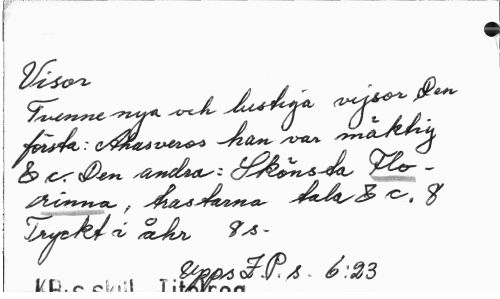 Visor
Tvenne nya och lustiga vijsor Den
första: Ahasveros han var mäktig
&c. Den andra: Skönsta Flo-
rinna, trastarna tala &c. 8
Tryckt i åhr 8 s.
Upps Z.P.s. 6:23
KB:s skill. Titelreg